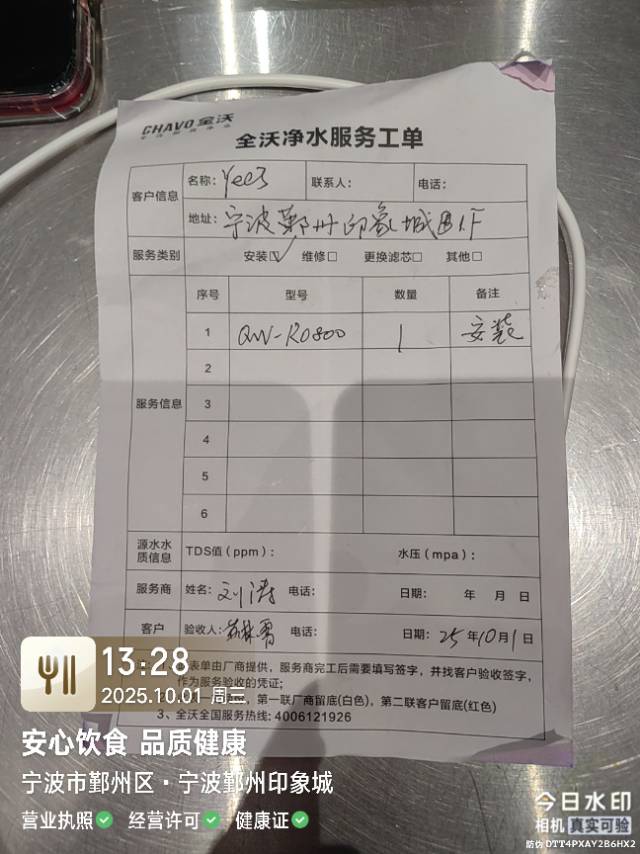 CHAVO 全沃
全沃净水服务工单
客户信息 名称: Yee3 联系人: 电话:
地址: 宁波鄞州印象城B1F
服务类别 安装☑ 维修□ 更换滤芯□ 其他□
服务信息 序号 型号 数量 备注
1 QW-RO800 1 安装
2
3
4
5
6
源水水质信息 TDS值(ppm): 水压(mpa):
服务商 姓名: 刘涛 电话: 日期: 年 月 日
客户 验收人: 电话: 日期: 25年10月1日
表单由厂商提供,服务商完工后需要填写签字,并找客户验收签字,
作为服务验收的凭证;
第一联厂商留底(白色),第二联客户留底(红色)
3、全沃全国服务热线: 4006121926
13:28
2025.10.01 周三
安心饮食 品质健康
宁波市鄞州区·宁波鄞州印象城
营业执照 经营许可 健康证
今日水印
相机 真实可验
防伪 DTT4PXAY2B6HX2